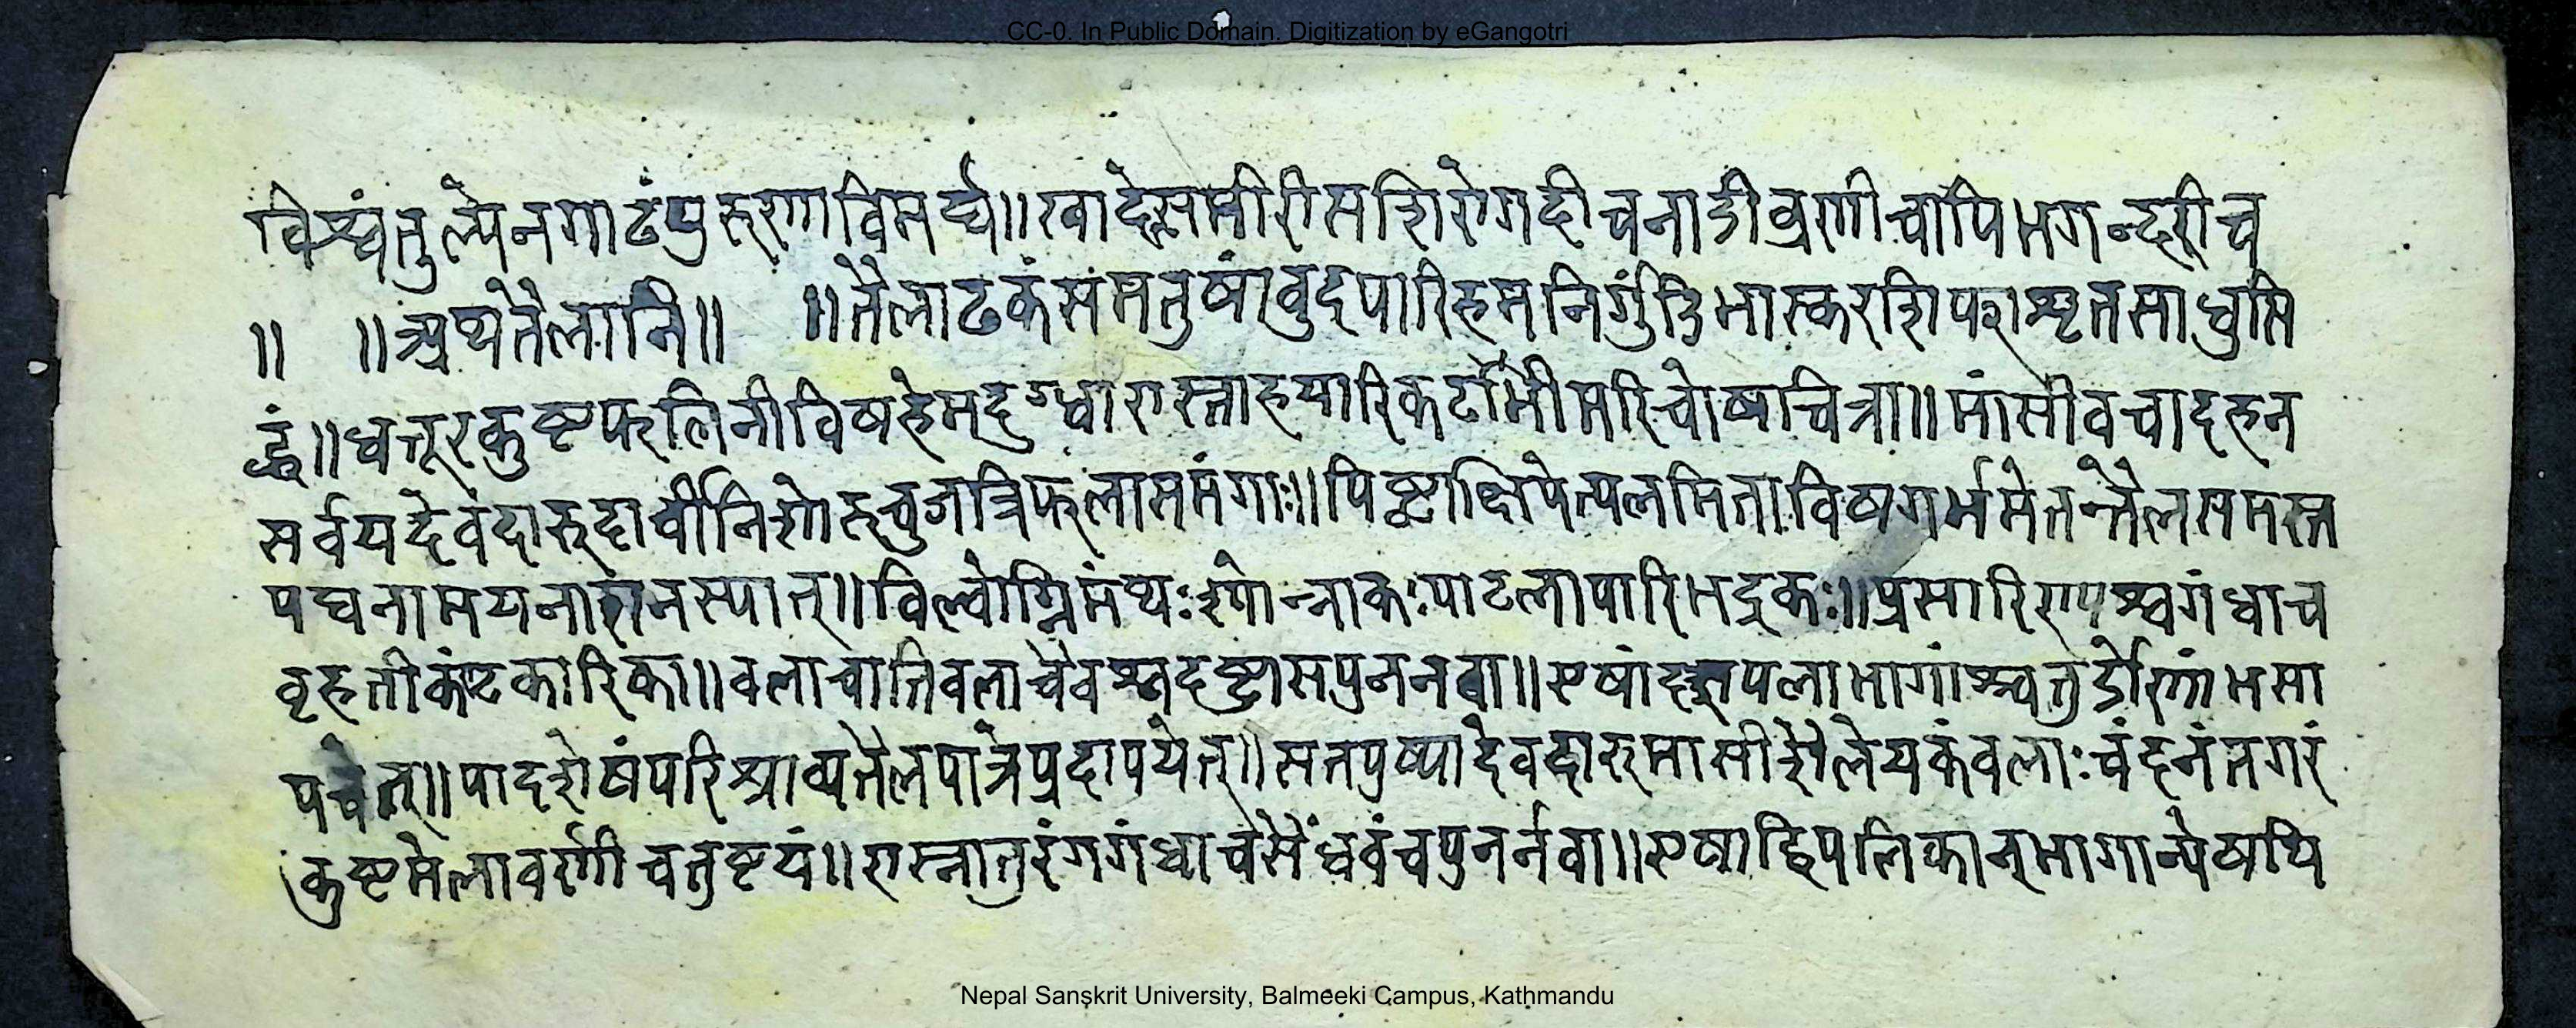 CC-0. In Public Domain. Digitization by eGangotri
विश्वंतुल्येनगाढंपुरुणविमर्द्य॥खादेत्समीरीसशिरोगदीचनाडीव्रणीचापिभगन्दरीच
॥ ॥अथतैलानि॥ ॥तैलाढकंसमतुषांवुदपारिहमनिर्गुंडिभास्करशिफाशृतसाधुसि
द्धं॥धत्तूरकुष्टफलिनीविषहेमदुग्धारास्नाहयारिकटभीमरिचोषचित्रा॥मांसीवचादहन
सर्वयदेवंदारुदार्वीनिशोरुचुजत्रिफलासमंगाः॥पिष्ट्वाक्षिपेत्पलमिताविषगर्भमेतत्तैलसमस्त
पघनामयनाशनस्यात्॥विल्वोग्निमंथःश्योन्नाकःपाटलापारिभद्रकः॥प्रसारिण्यश्वगंधाच
वृहतीकंटकारिका॥वलाचातिवलाचैवश्वदष्ट्रासपुननवा॥एषांदशपलाभागांश्चतुर्द्रोणांभसा
पचेत्॥पादशेषंपरिश्राव्यतैलपात्रेप्रदापयेत्॥सतपुष्पादेवदारुमासीशैलेयकंवलाःचंदनंतगरं
कुष्टमेलावर्णीचतुष्टयं॥रास्नातुरंगगंधाचसैंधवंचपुनर्नवा॥एषाद्विपलिकान्भागान्पेषयि
Nepal Sanskrit University, Balmeeki Campus, Kathmandu